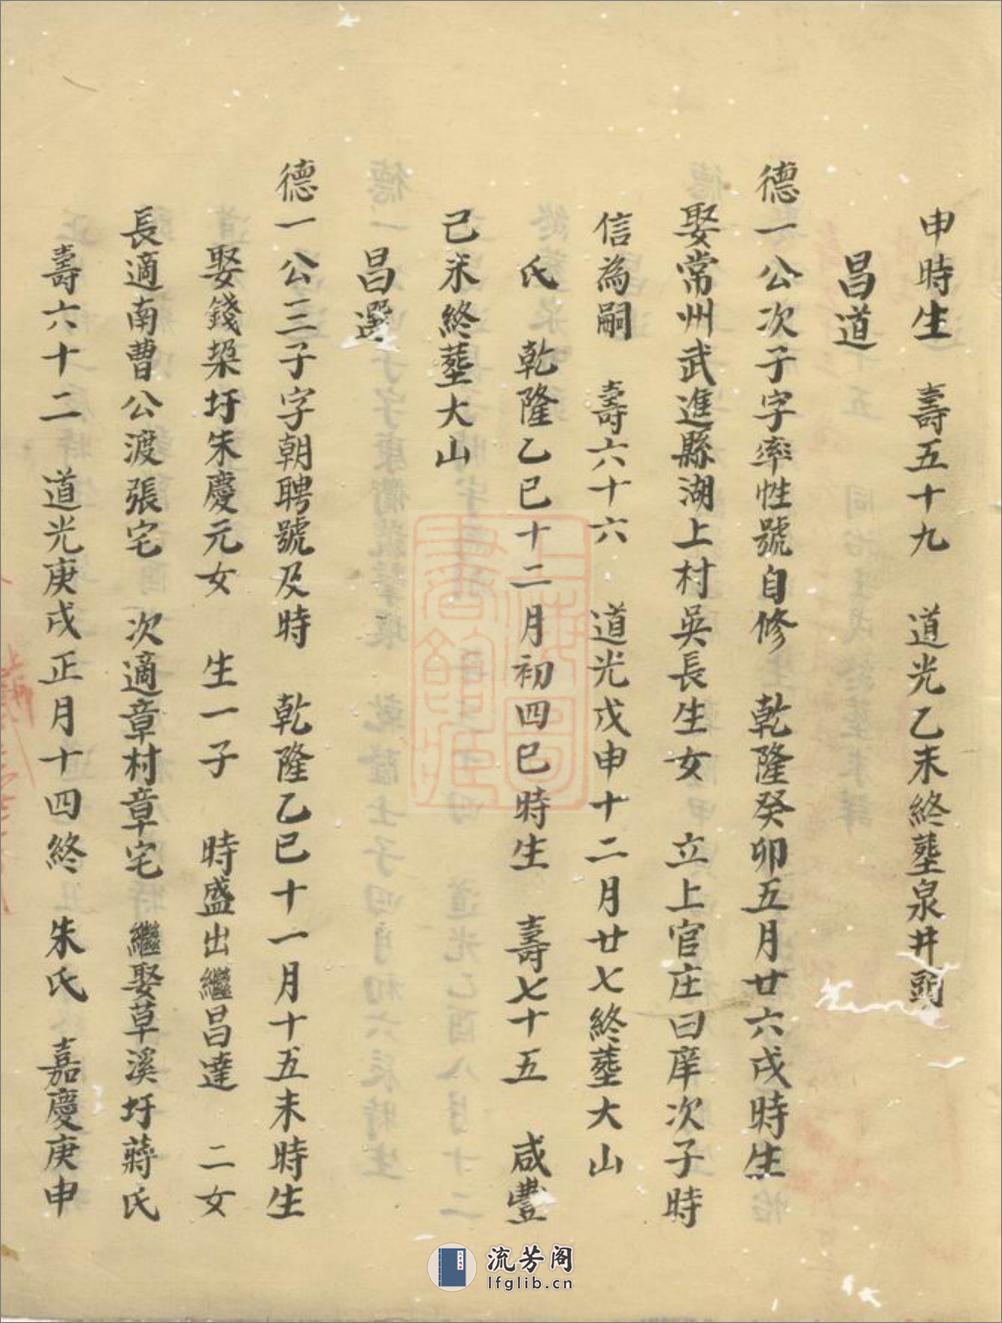 申時生　壽五十九　道光乙未終塟泉井頭
昌道
德一公次子字率性號自修　乾隆癸卯五月廿六戌時生
娶常州武進縣湖上村吳長生女　立上官庄曰庠次子時
信為嗣　壽六十六　道光戊申十二月廿七終塟大山
氏　乾隆乙巳十二月初四巳時生　壽七十五　咸豐
己未終塟大山
昌選
德一公三子字朝聘號及時　乾隆乙巳十一月十五未時生
娶錢㭍圩朱慶元女　生一子　時盛出繼昌達　二女
長適南曹公渡張宅　次適章村章宅　繼娶草溪圩蔣氏
壽六十二　道光庚戌正月十四終　朱氏　嘉慶庚申
上海圖
書館藏
流芳阁
lfglib.cn